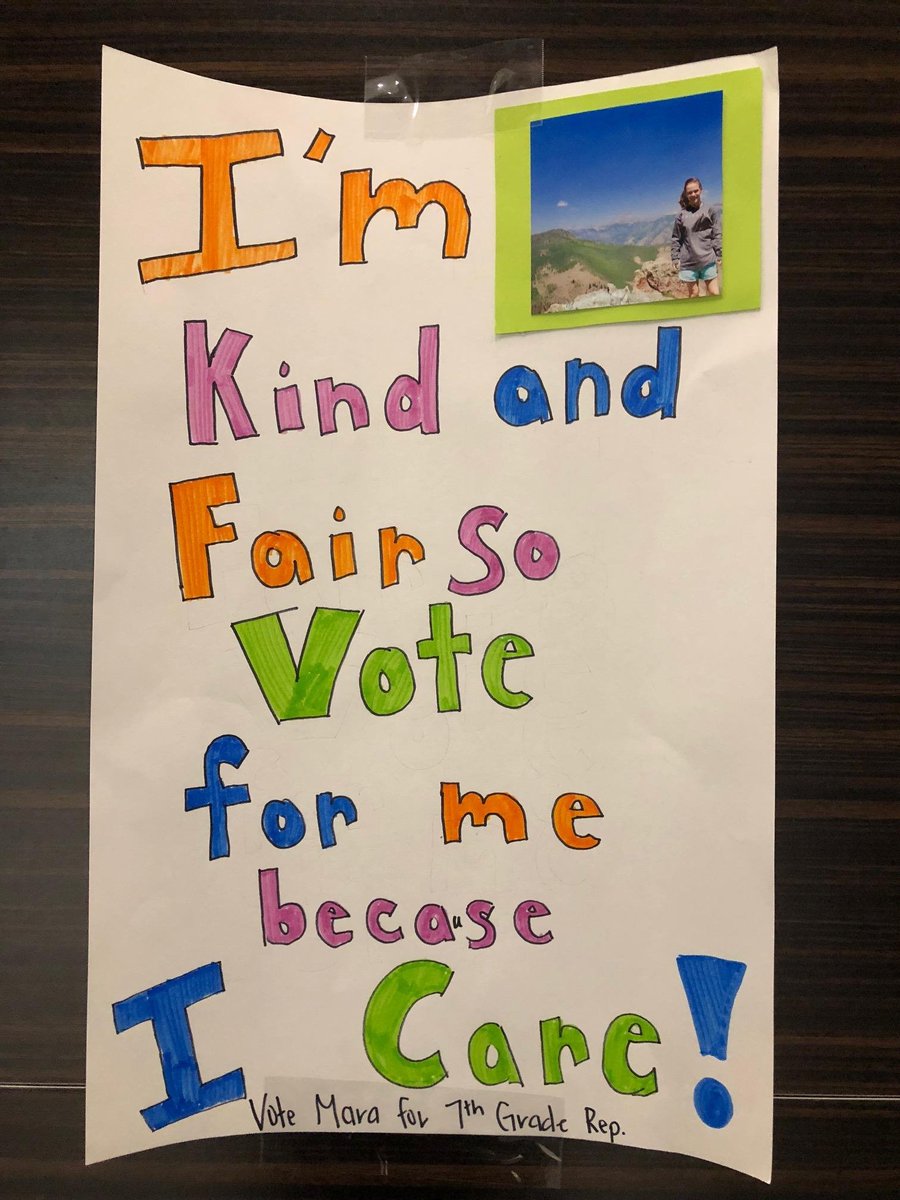 I'm
Kind and
Fair so
Vote
for me
because
I Care!
Vote Mara for 7th Grade Rep.